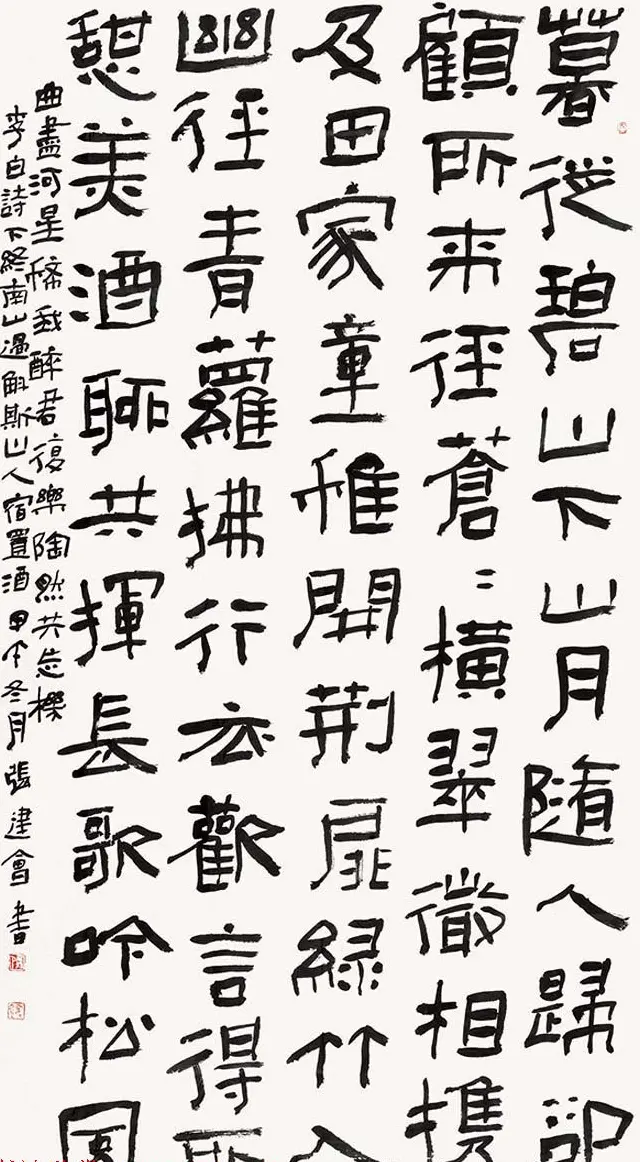 暮從碧山下山月隨人歸卻
顧所來徑蒼〻橫翠微相携
及田家童稚開荊扉綠竹入
幽徑青蘿拂行衣歡言得所
憩美酒聊共揮長歌吟松風
曲盡河星稀我醉君復樂陶然共忘機
李白詩下終南山過斛斯山人宿置酒 甲午冬月 張建會書